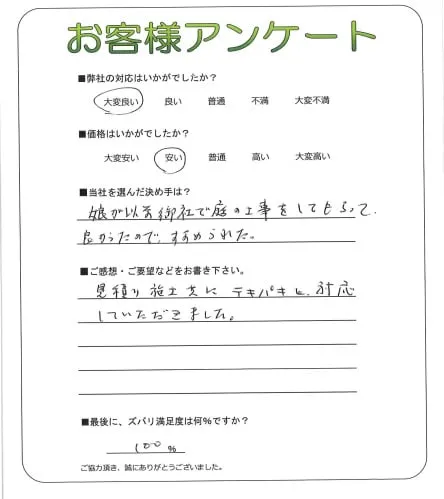 お客様アンケート
■弊社の対応はいかがでしたか？
大変良い 良い 普通 不満 大変不満
■価格はいかがでしたか？
大変安い 安い 普通 高い 大変高い
■当社を選んだ決め手は？
娘が以前御社で庭の工事をしてもらって
良かったので、すすめられた。
■ご感想・ご要望などをお書き下さい。
見積り施工共にテキパキと対応
していただきました。
■最後に、ズバリ満足度は何％ですか？
100％
ご協力頂き、誠にありがとうございました。